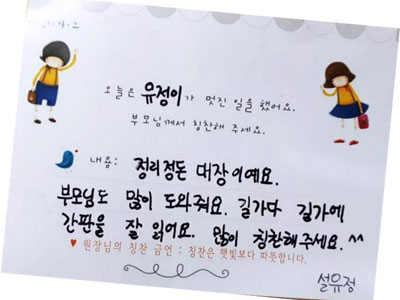 오늘은 유정이가 멋진 일을 했어요.
부모님께서 칭찬해 주세요.
내용: 정리정돈 대장이예요.
부모님도 많이 도와줘요. 길가다 길가에
간판을 잘 읽어요. 많이 칭찬해주세요. ^^
♥ 원장님의 칭찬 금언 : 칭찬은 햇빛보다 따뜻합니다.
설유정